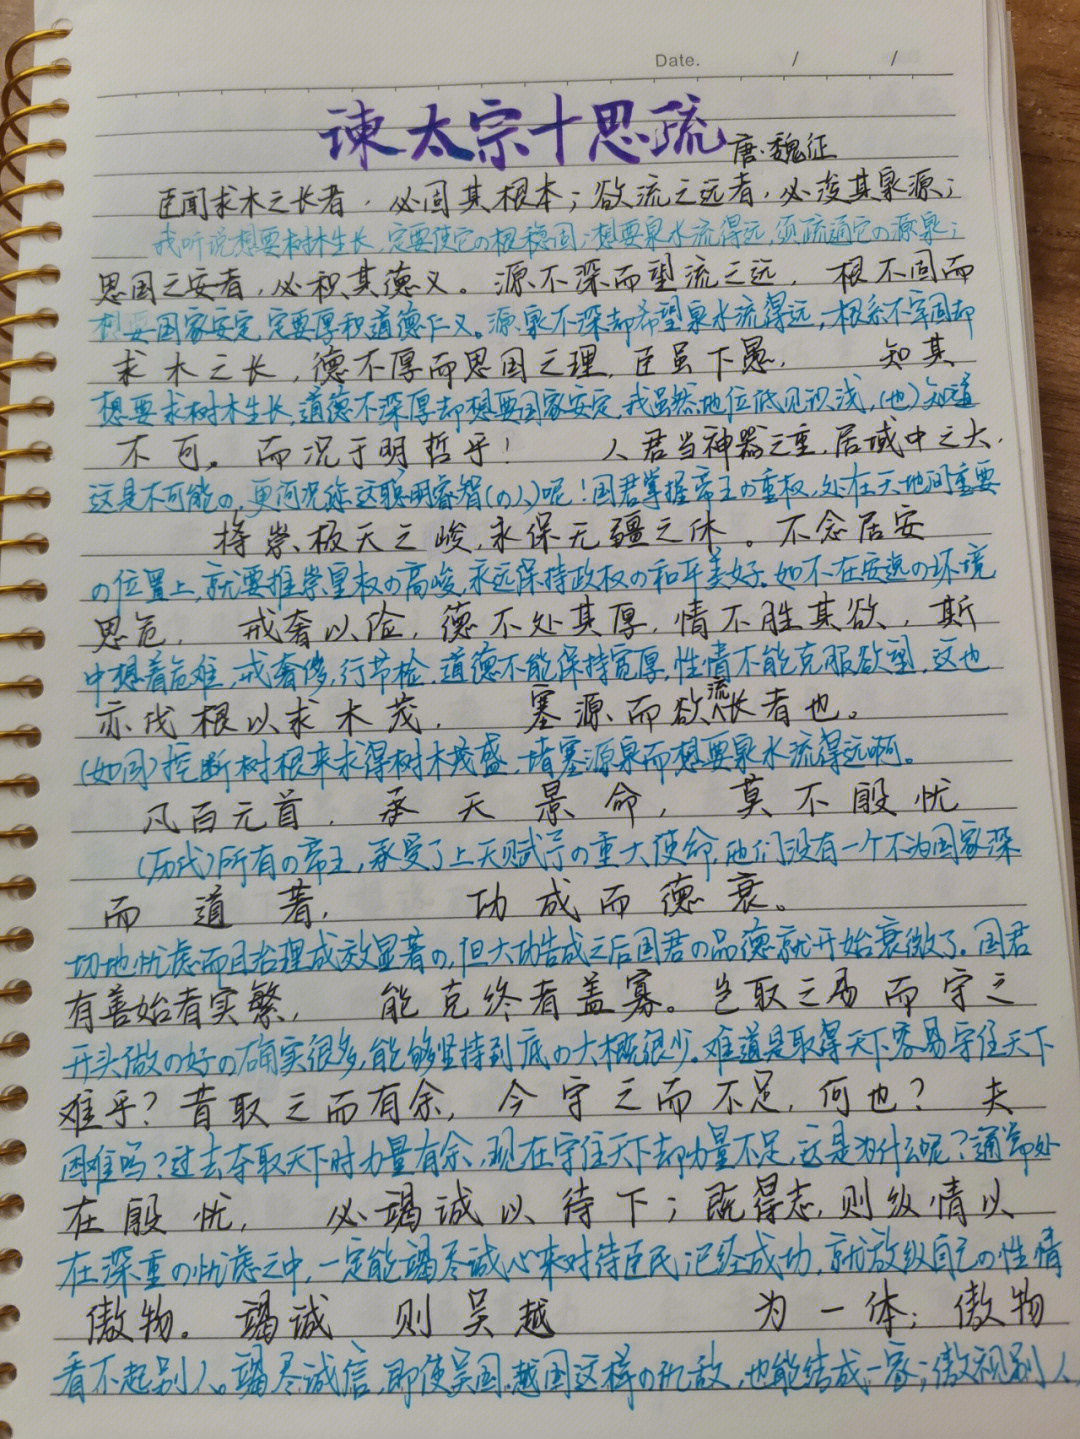 Date. / /
谏太宗十思疏 唐·魏征
臣闻求木之长者，必固其根本；欲流之远者，必浚其泉源；
我听说想要树木生长，一定要使它の根稳固；想要泉水流得远，须疏通它の源泉；
思国之安者，必积其德义。源不深而望流之远，根不固而
想要国家安定，定要厚积道德仁义。源泉不深却希望泉水流得远，根系不牢固却
求木之长，德不厚而思国之理，臣虽下愚，知其
想要求树木生长，道德不深厚却想要国家安定，我虽然地位低见识浅，(也)知道
不可，而况于明哲乎！人君当神器之重，居域中之大，
这是不可能の，更何况你这聪明睿智(の人)呢！国君掌握帝王の重权，处在天地间重要
将崇极天之峻，永保无疆之休。不念居安
の位置上，就要推崇皇权の高峻，永远保持政权の和平美好。如不在安逸の环境
思危，戒奢以俭，德不处其厚，情不胜其欲，斯
中想着危难，戒奢侈，行节检，道德不能保持宽厚，性情不能克服欲望，这也
亦伐根以求木茂，塞源而欲流长者也。
(如同)挖断树根来求得树木茂盛，堵塞源泉而想要泉水流得远啊。
凡百元首，承天景命，莫不殷忧
(历代)所有の帝王，承受了上天赋予の重大使命，他们没有一个不为国家深
而道著，功成而德衰。
切地忧虑而且治理成效显著の，但大功告成之后国君の品德就开始衰微了。国君
有善始者实繁，能克终者盖寡。岂取之易而守之
开头做の好の确实很多，能够坚持到底の大概很少。难道是取得天下容易守住天下
难乎？昔取之而有余，今守之而不足，何也？夫
困难吗？过去夺取天下时力量有余，现在守住天下却力量不足，这是为什么呢？通常处
在殷忧，必竭诚以待下；既得志，则纵情以
在深重の忧虑之中，一定能竭尽诚心来对待臣民，已经成功，就放纵自己の性情
傲物。竭诚则吴越为一体；傲物
看不起别人。竭尽诚信，即使吴国、越国这样の仇敌，也能结成一家；傲视别人，